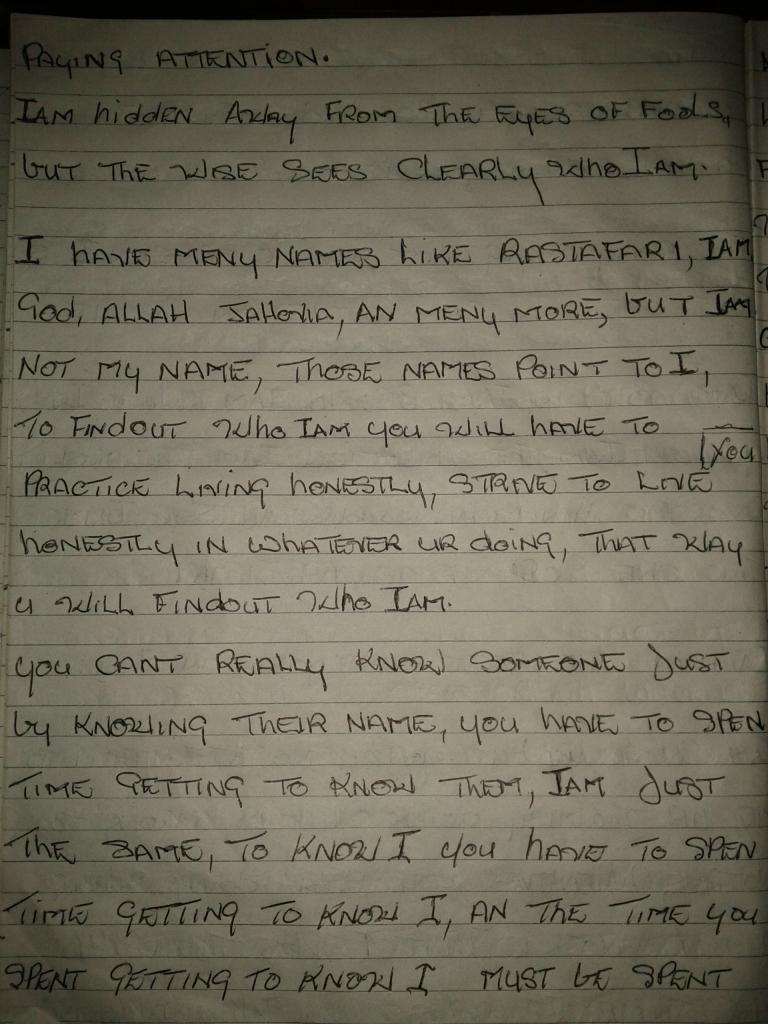 PAYING ATTENTION.
IAM hidden AWAY FROM THE EYES OF FOOLS,
bUT THE WISE SEES CLEARLY Who IAM.
I hAVE MENY NAMES LIKE RASTAFARI, IAM
God, ALLAH JAHOVIA, AN MENY MORE, bUT IAM
NOT MY NAME, THOSE NAMES POINT TO I,
TO FINdOUT Who IAM you WILL hAVE TO
PRACTICE LIVING hONESTLY, STRIVE TO LIVE [You
hONESTLY IN WHATEVER UR doING, THAT WAY
U WILL FINdOUT Who IAM.
you CANT REALLY KNOW SOMEONE JUST
by KNOWING THEIR NAME, you hAVE TO SPEN
TIME GETTING TO KNOW THEM, IAM JUST
THE SAME, TO KNOW I you hAVE TO SPEN
TIME GETTING TO KNOW I, AN THE TIME you
SPENT GETTING TO KNOW I MUST bE SPENT